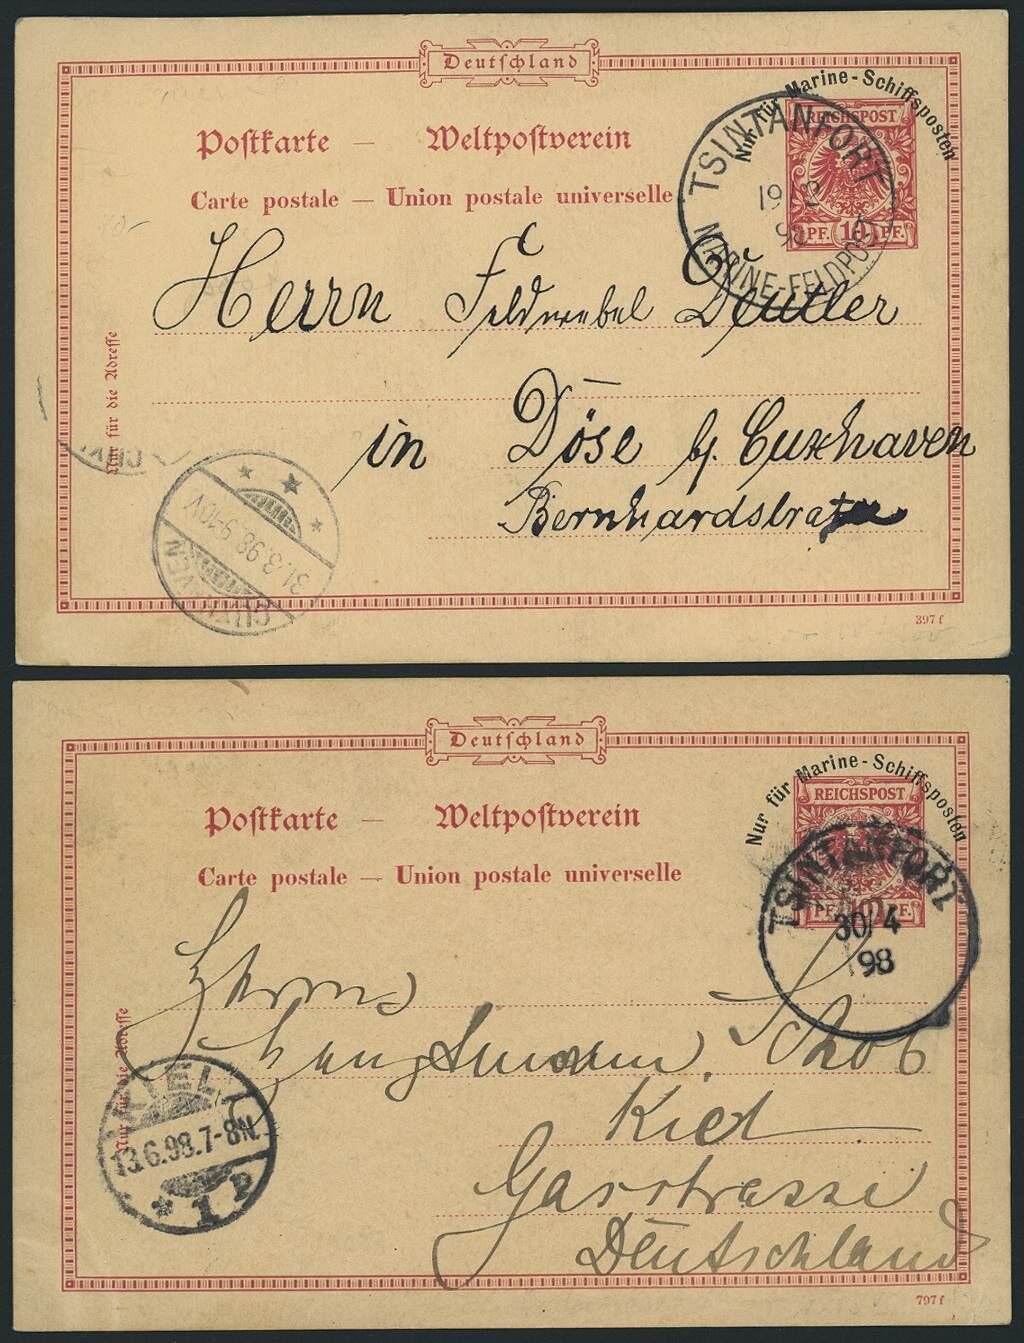 Deutschland
Nur für Marine-Schiffsposten
REICHSPOST
Postkarte — Weltpostverein
Carte postale — Union postale universelle
TSINTANFORT
19/2
98
MARINE-FELDPOST
PF. 10 PF.
Herrn Feldwebel
in Döse b/ Cuxhaven
Nur für die Adresse
CUXHAVEN
31.3.98.9-10V.
397f
Deutschland
Nur für Marine-Schiffsposten
REICHSPOST
Postkarte — Weltpostverein
Carte postale — Union postale universelle
PF. 10 PF.
TSINTANFORT
30/4
98
Herrn
Hauptmann
Kiel
Gasstrasse
Deutschland
Nur für die Adresse
KIEL
13.6.98.7-8N.
* 1 P
797f